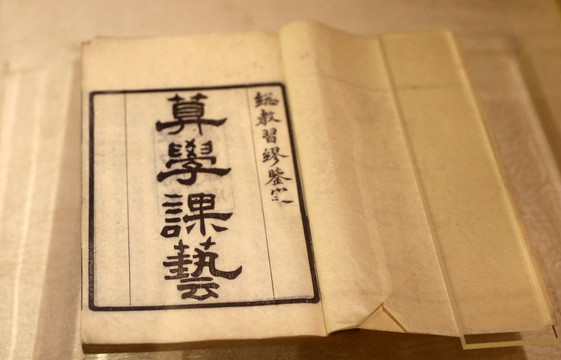 總教習繆鑒定
算學課藝